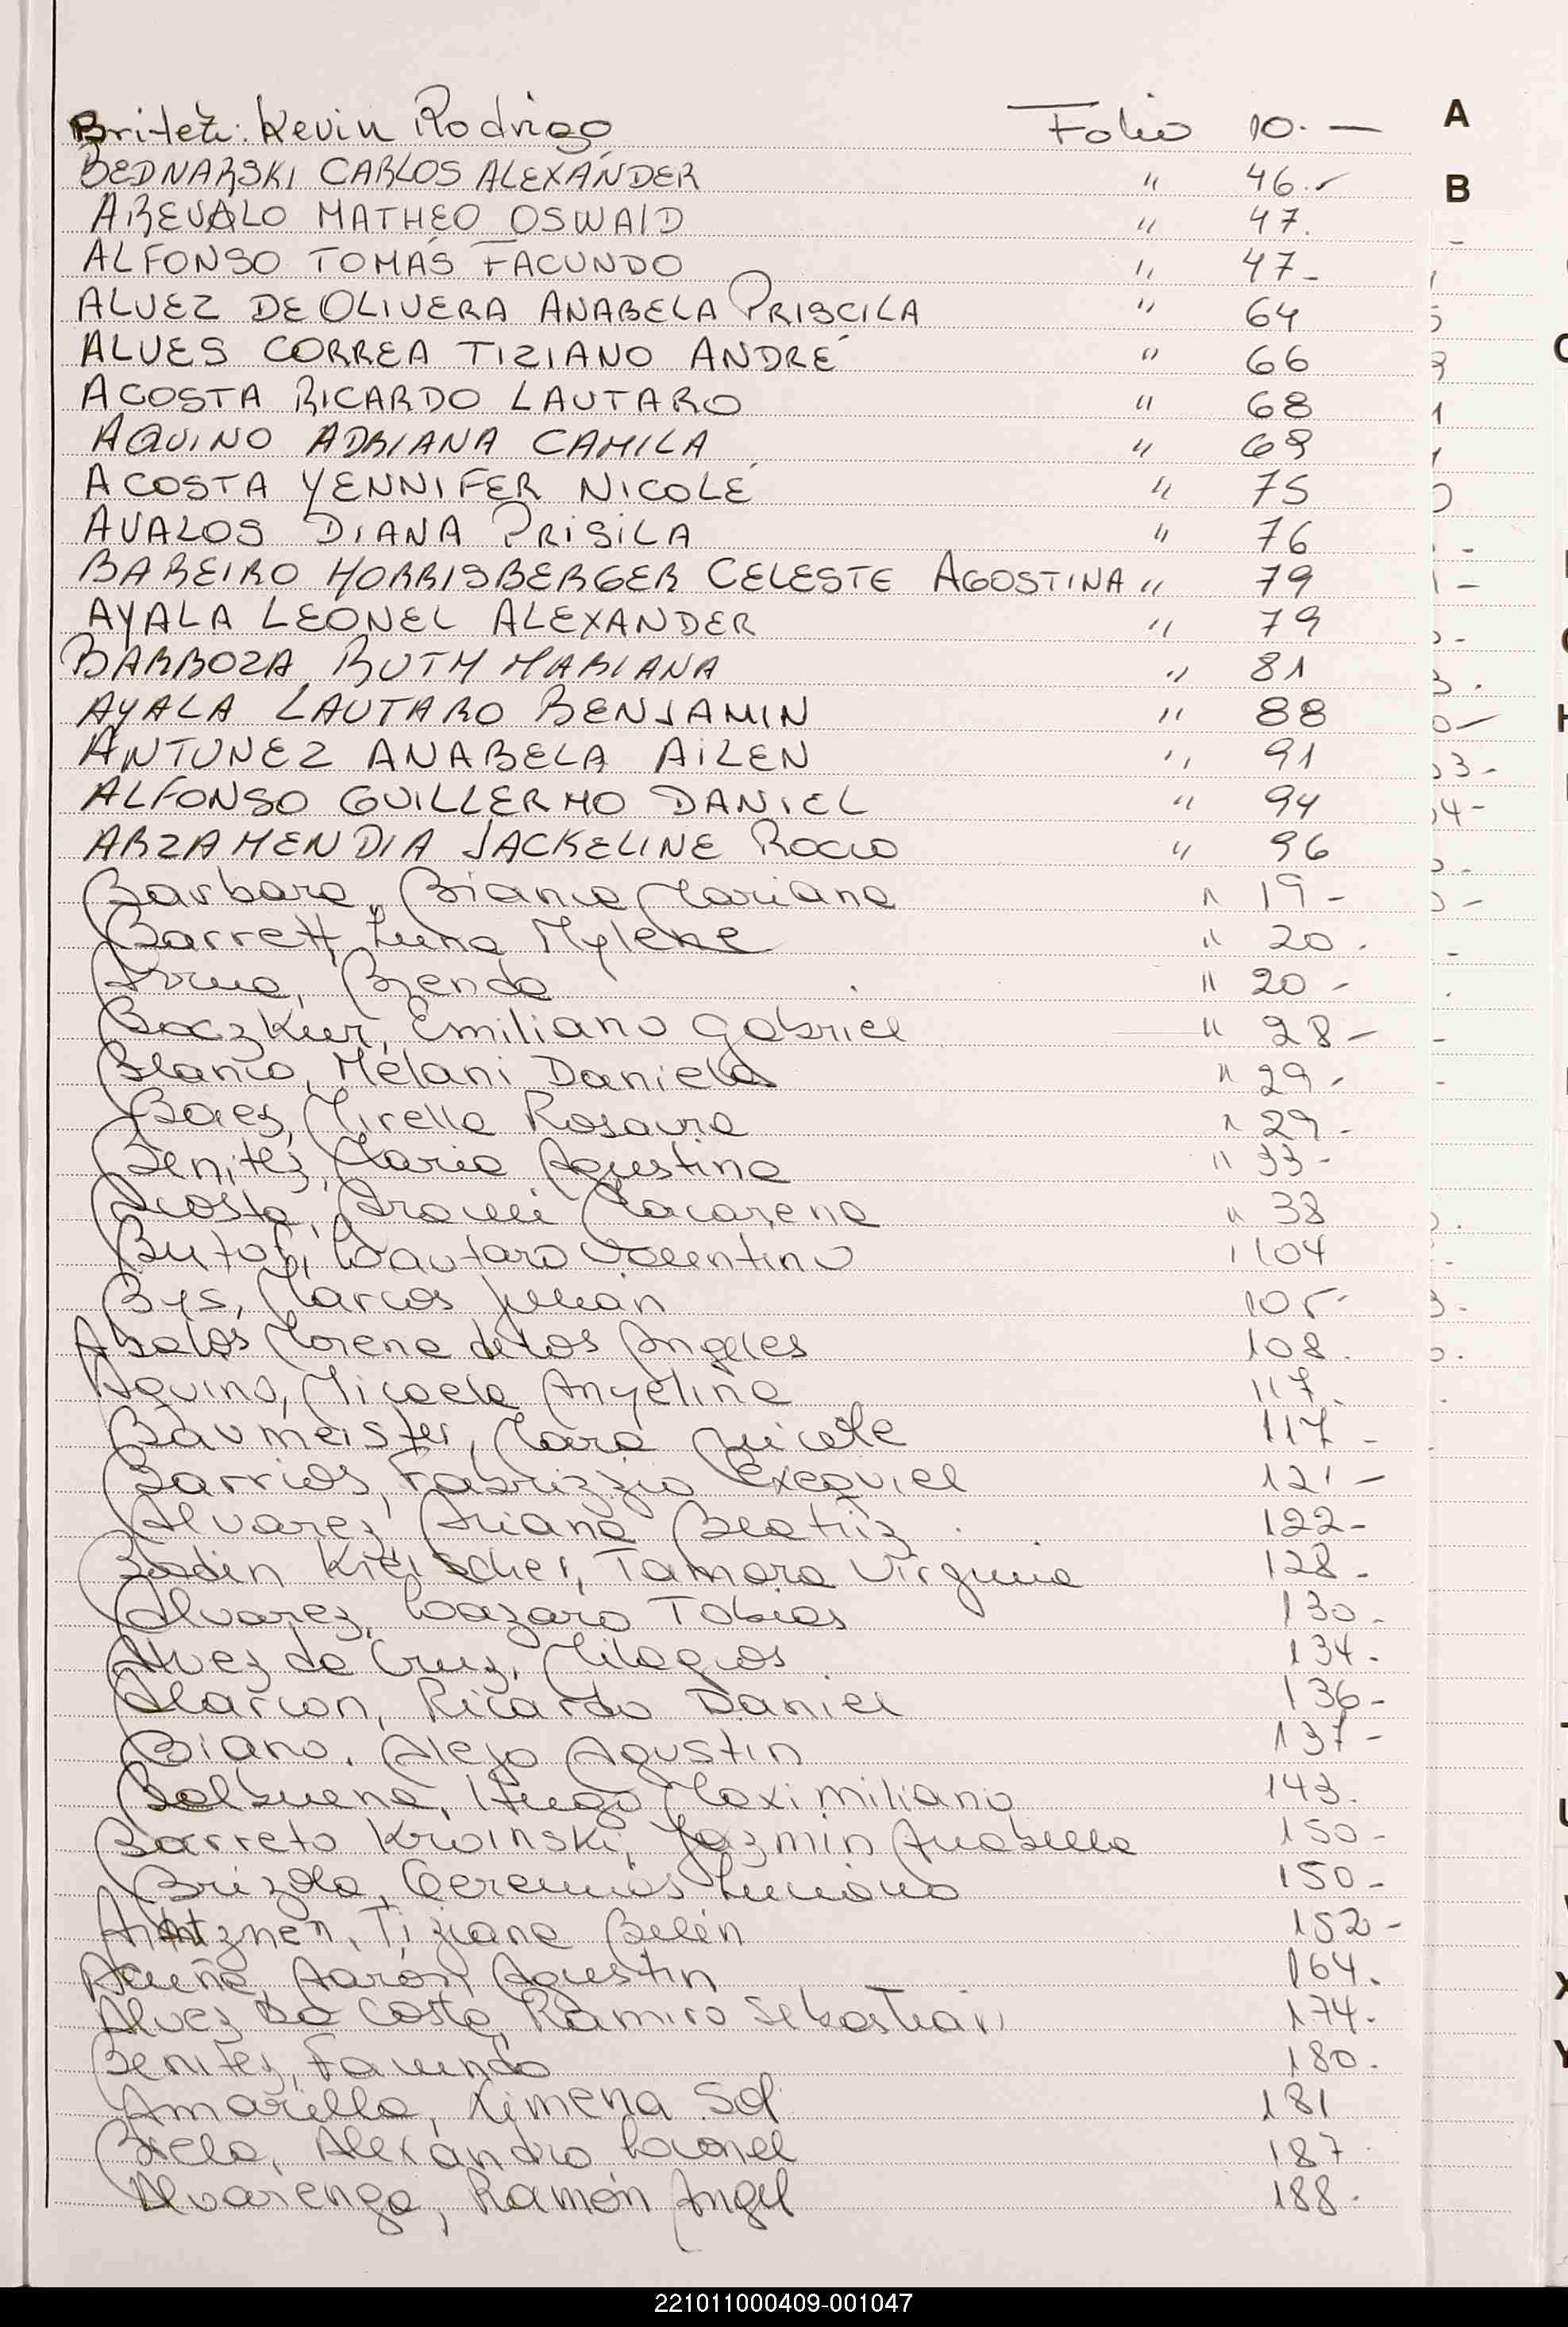 Britez: Kevin Rodrigo Folio 10.- A
BEDNARSKI CARLOS ALEXANDER " 46.- B
AREVALO MATHEO OSWALD " 47.
ALFONSO TOMÁS FACUNDO " 47-
ALVEZ DE OLIVERA ANABELA PRISCILA " 64
ALVES CORREA TIZIANO ANDRÉ " 66
ACOSTA RICARDO LAUTARO " 68
AQUINO ADRIANA CAMILA " 69
ACOSTA YENNIFER NICOLÉ " 75
AVALOS DIANA PRISILA " 76
BAREIRO HORRISBERGER CELESTE AGOSTINA " 79
AYALA LEONEL ALEXANDER " 79
BARBOZA RUTH MARIANA " 81
AYALA LAUTARO BENJAMIN " 88
ANTUNEZ ANABELA AILEN " 91
ALFONSO GUILLERMO DANIEL " 94
ARZAMENDIA JACKELINE ROCIO " 96
Barbara, Bianca Mariana " 19-
Barrett, Luna Mylene " 20.
Arrua, Brenda " 20-
Boczkier, Emiliano Gabriel " 28-
Blanco, Melani Daniela " 29-
Baez, Mirella Rosaura " 29-
Benitez, Maria Agustina " 33-
Acosta, Aramí Macarena " 38
Butof, Lautaro Valentino " 104
Bys, Marcos Julián 105-
Abalos Morena de los Angeles 108.
Aquino, Micaela Anyelina 117.
Baumeister, Mara Nicole 117-
Barrios, Fabrizzio Exequiel 121-
Alvarez, Ariana Beatriz 122-
Bodin Tamara Virginia 128.
Alvarez, Lazaro Tobias 130.
Alvez da Cruz, Milagros 134.
Alarcon, Ricardo Daniel 136-
Biano, Alejo Agustin 137-
Balbuena, Hugo Maximiliano 143.
Barreto Kroinski, Yazmin Anabella 150-
Brizola, Geremías Luciano 150-
Tiziana Belén 152-
Acuña, Aarón Agustin 164.
Alvez Da Costa, Ramiro Sebastián 174.
Benitez, Facundo 180.
Amarilla, Ximena Sol 181
Alexandro Leonel 187.
Alvarenga, Ramón Angel 188.
221011000409-001047